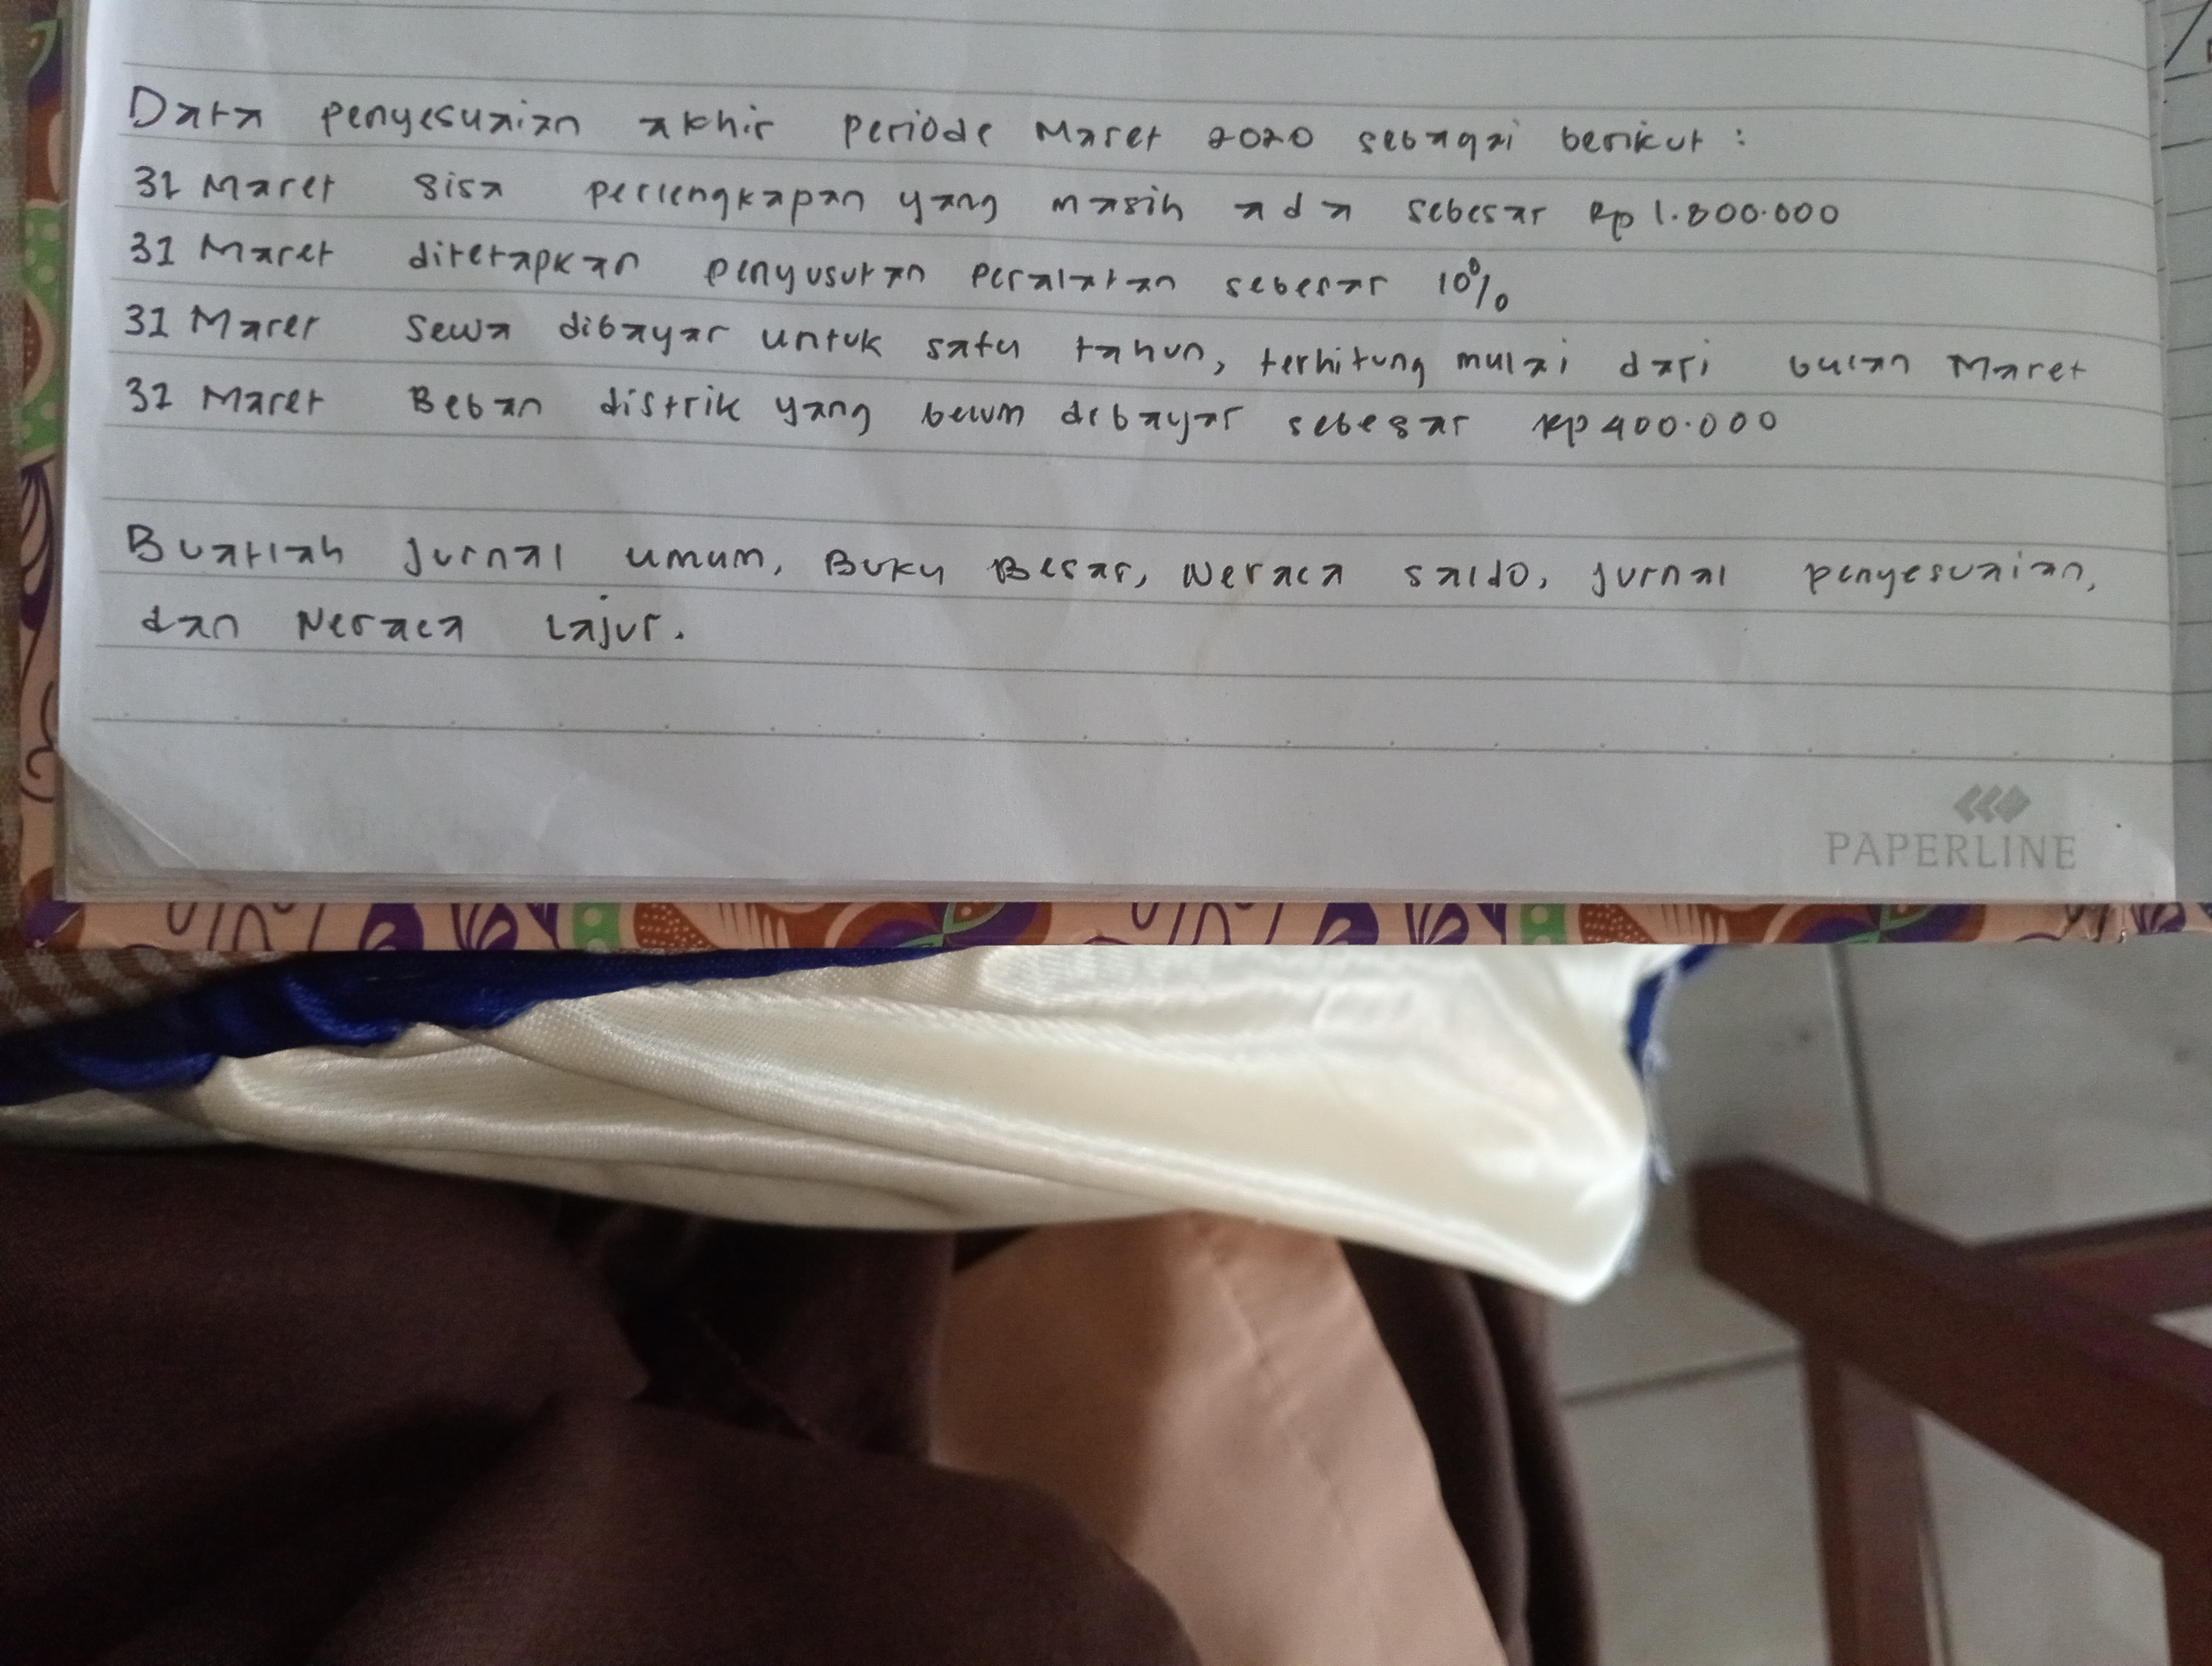 Data penyesuaian akhir periode Maret 2020 sebagai berikut :
31 Maret sisa perlengkapan yang masih ada sebesar Rp 1.800.000
31 Maret ditetapkan penyusutan peralatan sebesar 10%
31 Maret Sewa dibayar untuk satu tahun, terhitung mulai dari bulan Maret
31 Maret Beban distrik yang belum dibayar sebesar Rp 400.000
Buatlah jurnal umum, Buku Besar, Neraca saldo, jurnal penyesuaian,
dan Neraca Lajur.
PAPERLINE